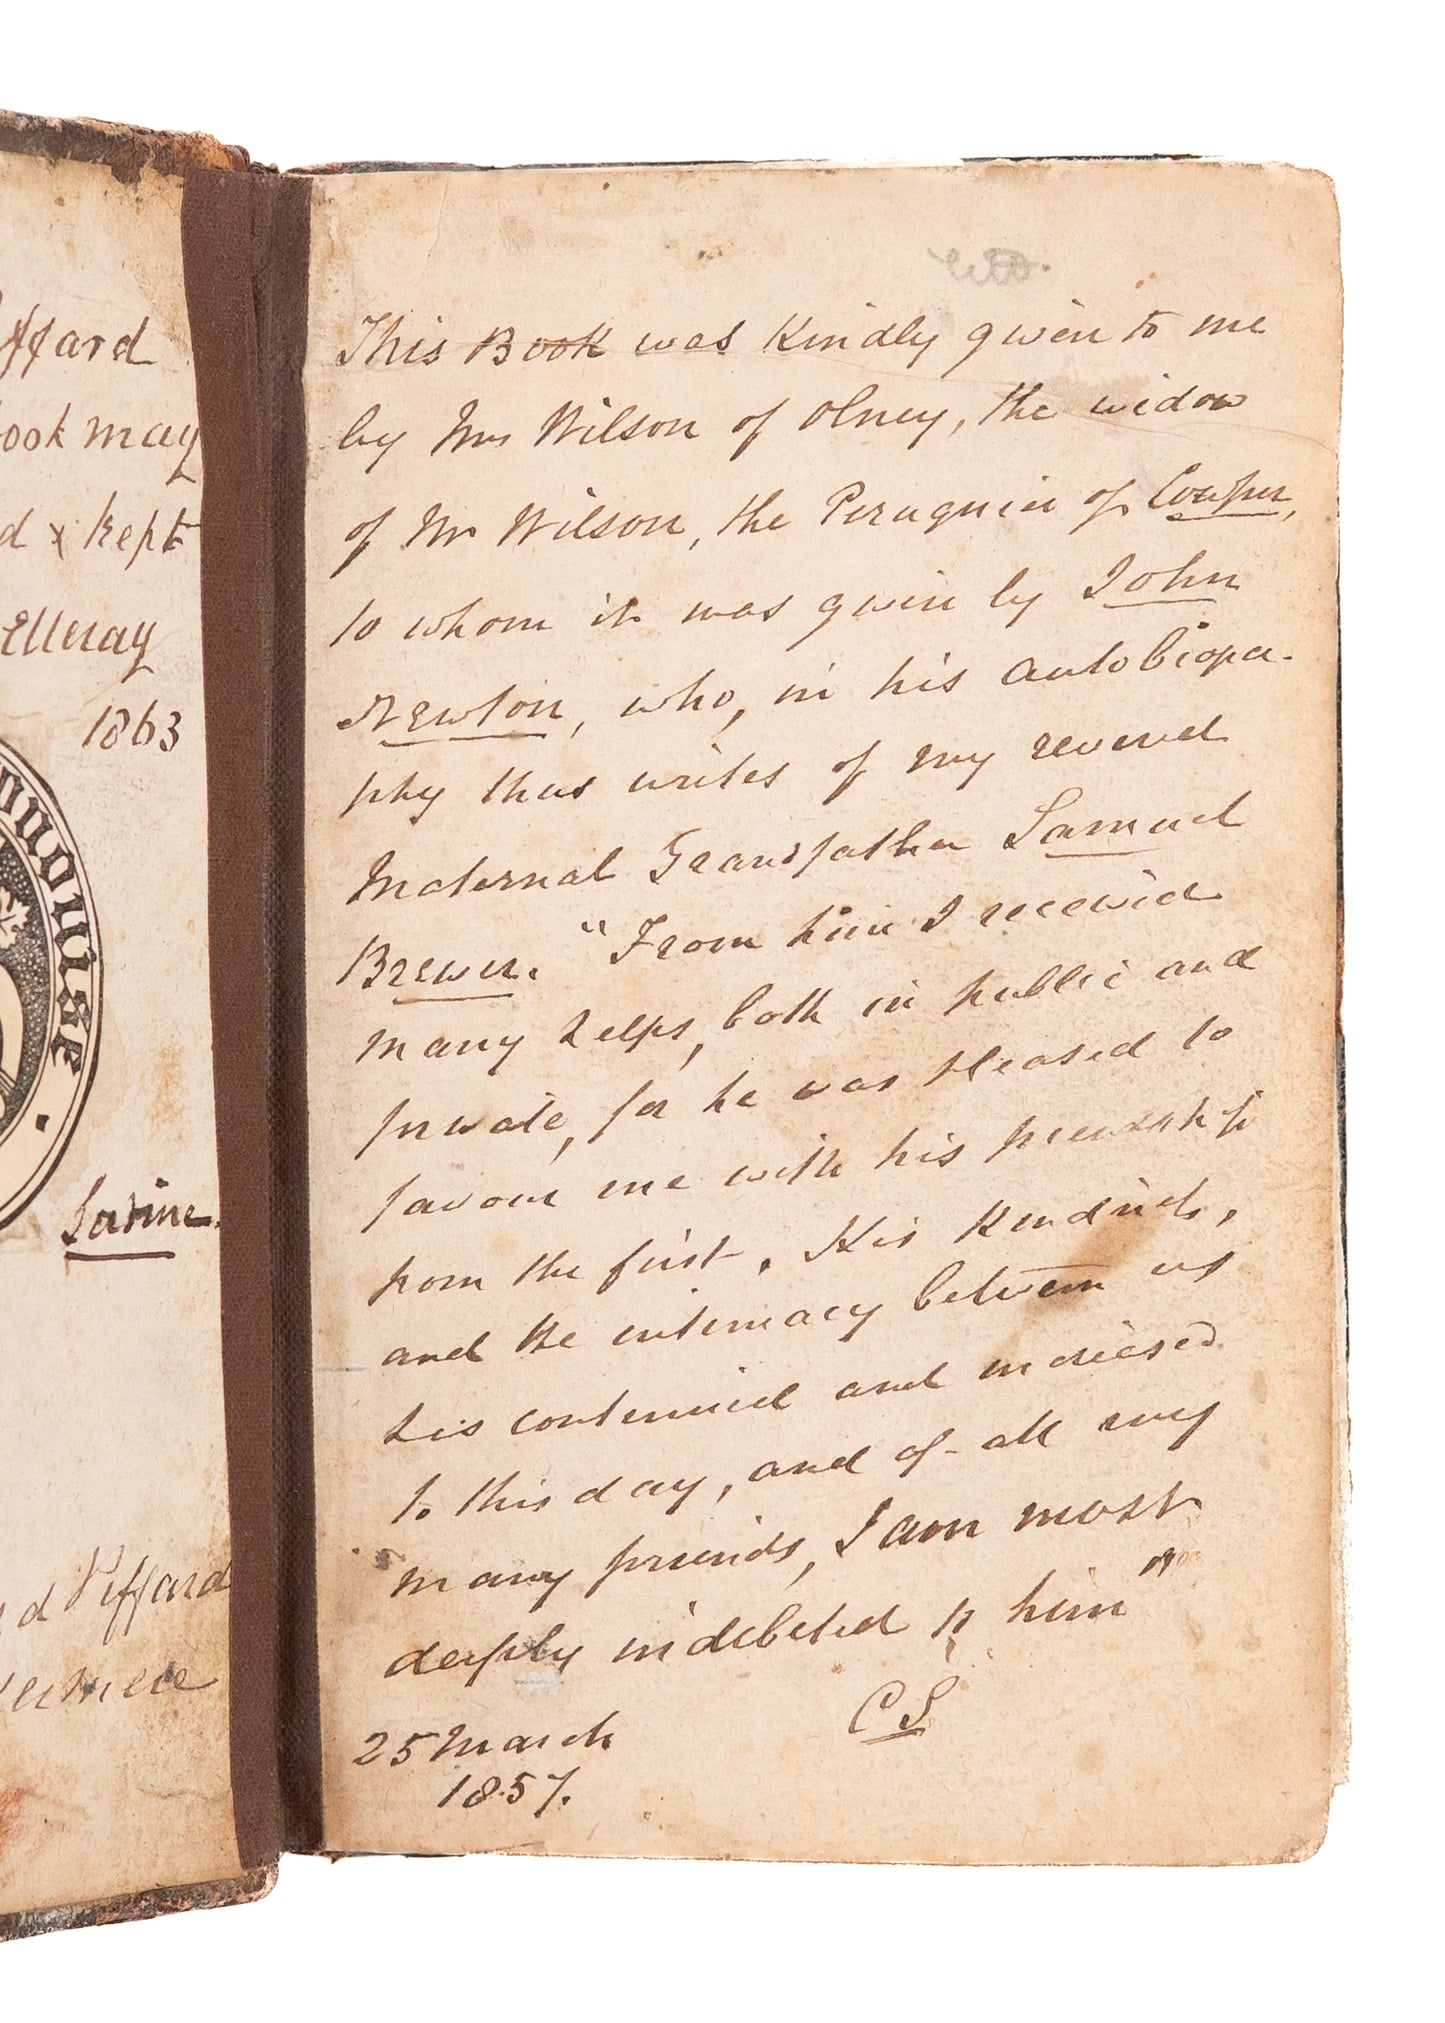 ffard
ook may
d & kept
Elleray
1863
Sartine.
d Piffard
This Book was Kindly given to me
by Mrs Wilson of Olney, the widow
of Mr Wilson, the Peruquier of Cowper,
to whom it was given by John
Newton, who, in his autobiogra-
phy thus writes of my revered
Maternal Grandfather Samuel
Brewer. "From him I received
many helps, both in public and
private, for he was pleased to
favour me with his friendship
from the first. His Kindness,
and the intimacy between us
has continued and increased
to this day, and of all my
many friends, I am most
deeply indebted to him"
C S
25 March
1857.